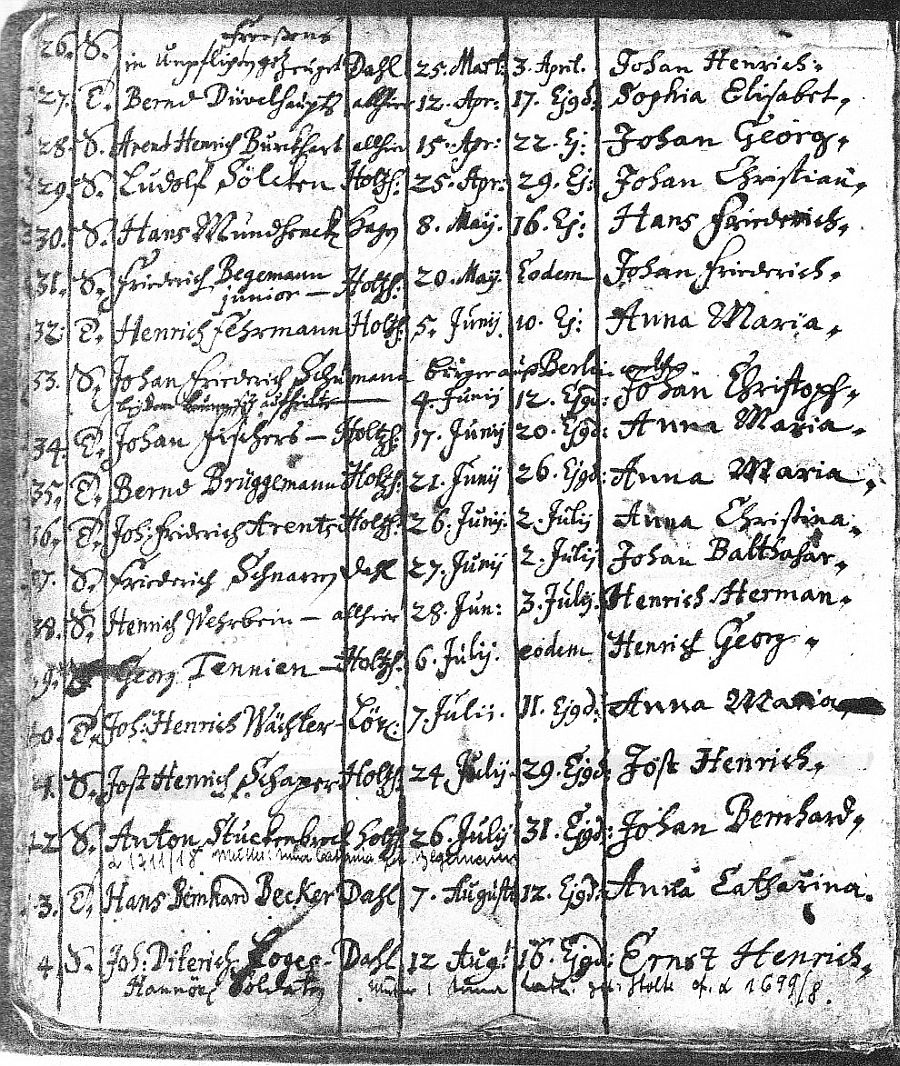 26. S. Dahl 25. Mart: 3. April. Johan Henrich.
27. T. Bernd Düvelhaupts allhier 12. Apr: 17. Ejgd: Sophia Elisabet.
28. S. Arent Henrich Burckhart allhier 15. Apr: 22. Ej: Johan Georg.
29. S. Ludolf Sölcken Holtzh: 25. Apr: 29. Ej: Johan Christian.
30. S. Hans Mundhenck Hagen 8. Maij. 16. Ej: Hans Friederich.
31. S. Friederich Begemann junior Holtzh: 20. May. Eodem Johan Friederich.
32. T. Henrich Fehrmann Holtzh: 5. Junij 10. Ej: Anna Maria.
33. S. Johan Friederich Schumann bürger aus Berlin
4. Junij 12. Ejgd: Johan Christoph.
34. T. Johan Fischers Holtzh: 17. Junij 20. Ejgd: Anna Maria.
35. T. Bernd Brüggemann Holtzh: 21. Junij 26. Ejgd: Anna Maria.
36. T. Joh: Friderich Arents Holtzh: 26. Junij. 2. Julij Anna Christina.
37. S. Friederich Schnarr Dahl 27. Junij 2. Julij Johan Balthasar.
38. S. Henrich Wehrbein allhier 28. Jun: 3. Julij. Henrich Herman.
9. Georg Tennien Holtzh: 6. Julij. eodem Henrich Georg
40. T. Joh: Henrich Wächter 7. Julij. 11. Ejgd: Anna Maria
41. S. Jost Henrich Schaper Holtzh: 24. Julij 29. Ejgd: Jost Henrich.
42 S. Anton Stuckenbrock Holtzh 26. Julij 31. Ejgd: Johan Bernhard.
1711/18 Begemann
3. T. Hans Bernhard Becker Dahl 7. Augusti 12. Ejgd: Anna Catharina.
4. S. Joh: Diterich Loges Dahl 12 Aug: 16. Ejgd: Ernst Henrich.
Soldat Anna Cath. Nolte d 1699/8.